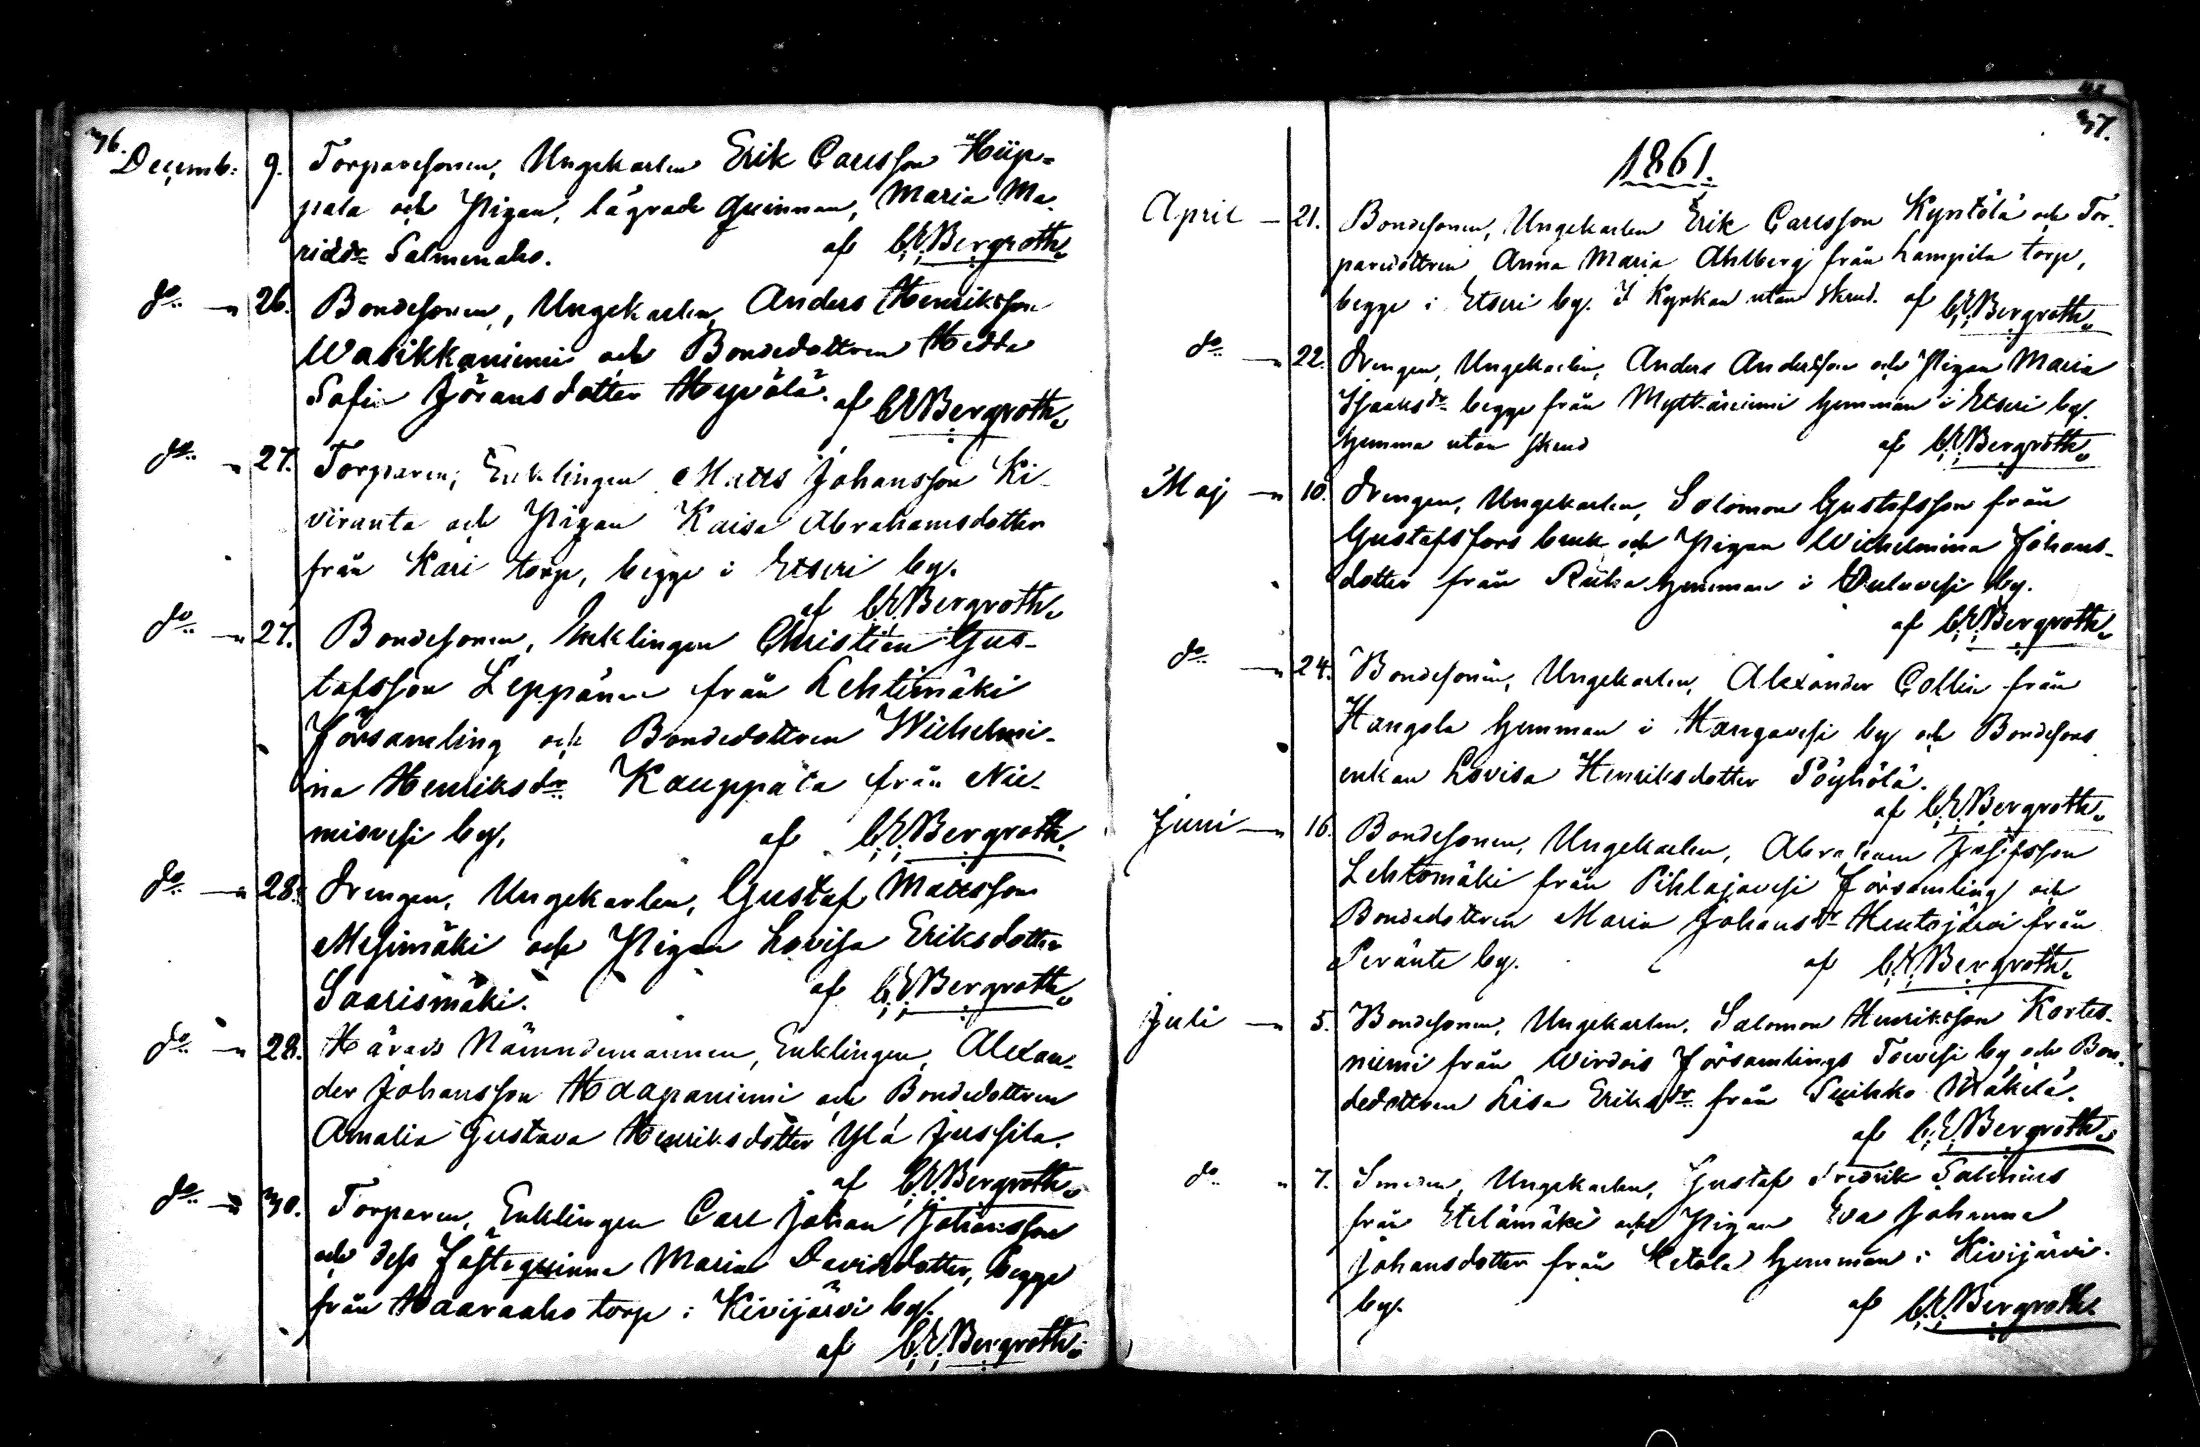 36.
Decemb. 9. Torparesonen, Ungekarlen Erik Carlsson Hiip-
pala och Pigan, lägrade Quinnan, Maria Ma-
tidr Salmenaho. af C.E. Bergroth.
do — 26. Bondesonen, Ungekarlen, Anders Henriksson
Wasikkaniemi och Bondedottren Hedda
Sofia Jöransdotter Hyvölä. af C.E. Bergroth.
do — 27. Torparen, Enklingen Matts Johansson Ki-
viranta och Pigan Kaisa Abrahamsdotter
från Kari torp, begge i Etseri by.
af C.E. Bergroth.
do — 27. Bondesonen, Enklingen Christian Gus-
tafsson Leppänen från Lehtimäki
Församling och Bondedottren Wilhelmi-
na Henriksdr Kauppala från Nie-
misvesi by. af C.E. Bergroth.
do — 28. Drengen, Ungekarlen, Gustaf Mattsson
Mesimäki och Pigan Lovisa Eriksdotter
Saarismäki. af C.E. Bergroth.
do — 28. Härads Nämndemannen, Enklingen, Alexan-
der Johansson Haapaniemi och Bondedottren
Amalia Gustava Henriksdotter Ylä Jussila.
af C.E. Bergroth.
do — 30. Torparen, Enklingen Carl Johan Johansson
och dess Fästequinna Maria Davidsdotter, begge
från Haaraaho torp i Kivijärvi by.
af C.E. Bergroth.
37.
1861.
April — 21. Bondesonen, Ungekarlen Erik Carlsson Kyntölä och Tor-
paredottren Anna Maria Ahlberg från Lampila torp,
begge i Etseri by. I Kyrkan utan skrud. af C.E. Bergroth.
do — 22. Drengen, Ungekarlen, Anders Andersson och Pigan Maria
Isaaksdr begge från Myllyniemi hemman i Etseri by.
hemma utan skrud af C.E. Bergroth.
Maj — 10. Drengen, Ungekarlen, Salomon Gustafsson från
Gustafsfors bruk och Pigan Wilhelmina Johans-
dotter från Riika hemman i Ouluvesi by.
af C.E. Bergroth.
do — 24. Bondesonen, Ungekarlen, Alexander Collin från
Hangola hemman i Hangavesi by och Bondesons
enkan Lovisa Henriksdotter Pöyhölä.
af C.E. Bergroth.
Juni — 16. Bondesonen, Ungekarlen, Abraham Josefsson
Lehtomäki från Pihlajavesi Församling och
Bondedottren Maria Johansdr Hentojärvi från
Peränte by. af C.E. Bergroth.
Juli — 5. Bondesonen, Ungekarlen, Salomon Henriksson Kortes-
niemi från Wirdois Församlings Toivesi by och Bon-
dedottren Lisa Eriksdr från Peuhko Mäkelä.
af C.E. Bergroth.
do " 7. Smeden, Ungekarlen, Gustaf Fredrik Salenius
från Etelämäki och Pigan Eva Johanna
Johansdotter från Ketola hemman i Kivijärvi
by. af C.E. Bergroth.